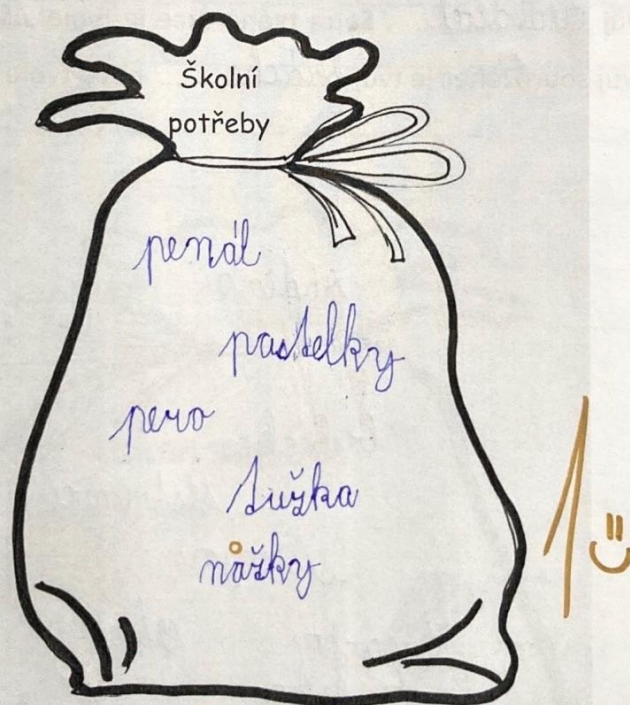 Školní
potřeby
penál
pastelky
pero
tužka
nůžky
1